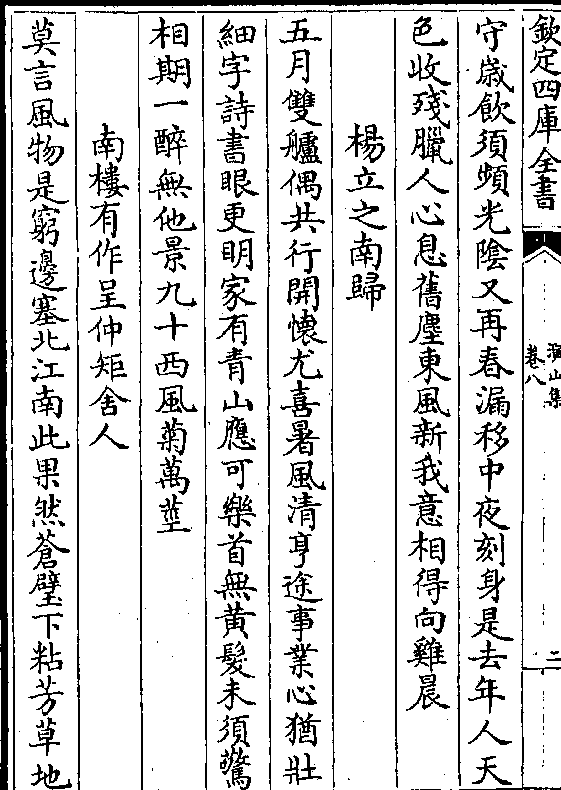 欽定四庫全書
漁山集
卷八
二
守歲飲須頻光陰又再春漏移中夜刻身是去年人天
色收殘臘人心息舊塵東風新我意相得向雞晨
楊立之南歸
五月雙艫偶共行開懷尤喜暑風清亨途事業心猶壯
細字詩書眼更明家有青山應可樂首無黃髮未須驚
相期一醉無他景九十西風菊萬莖
南樓有作呈仲矩舍人
莫言風物是窮邊塞北江南此果然蒼壁下粘芳草地